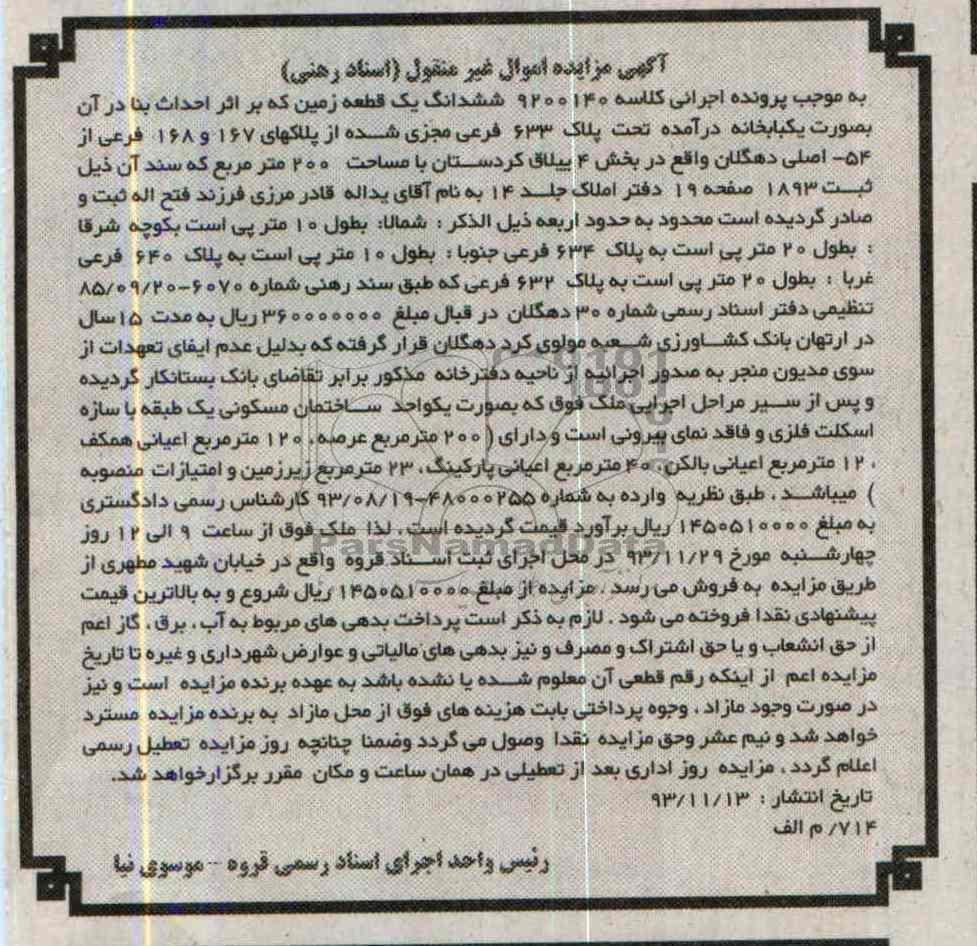 آگهی مزایده اموال غیر منقول (اسناد رهنی)
به موجب پرونده اجرائی کلاسه ۹۲۰۰۱۴۰ ششدانگ یک قطعه زمین که بر اثر احداث بنا در آن
بصورت یکبابخانه درآمده تحت پلاک ۶۳۳ فرعی مجزی شده از پلاکهای ۱۶۷ و ۱۶۸ فرعی از
۵۴- اصلی دهگلان واقع در بخش ۴ ییلاق کردستان با مساحت ۲۰۰ متر مربع که سند آن ذیل
ثبت ۱۸۹۳ صفحه ۱۹ دفتر املاک جلد ۱۴ به نام آقای یداله قادر مرزی فرزند فتح اله ثبت و
صادر گردیده است محدود به حدود اربعه ذیل الذکر : شمالا: بطول ۱۰ متر پی است بکوچه شرقا
: بطول ۲۰ متر پی است به پلاک ۶۳۴ فرعی جنوبا : بطول ۱۰ متر پی است به پلاک ۶۴۰ فرعی
غربا : بطول ۲۰ متر پی است به پلاک ۶۳۲ فرعی که طبق سند رهنی شماره ۶۰۷۰-۸۵/۰۹/۲۰
تنظیمی دفتر اسناد رسمی شماره ۳۰ دهگلان در قبال مبلغ ۳۶۰۰۰۰۰۰۰ ریال به مدت ۱۵سال
در ارتهان بانک کشاورزی شعبه مولوی کرد دهگلان قرار گرفته که بدلیل عدم ایفای تعهدات از
سوی مدیون منجر به صدور اجرائیه از ناحیه دفترخانه مذکور برابر تقاضای بانک بستانکار گردیده
و پس از سیر مراحل اجرایی ملک فوق که بصورت یکواحد ساختمان مسکونی یک طبقه با سازه
اسکلت فلزی و فاقد نمای بیرونی است و دارای ( ۲۰۰ مترمربع عرصه، ۱۲۰ مترمربع اعیانی همکف
، ۱۲ مترمربع اعیانی بالکن، ۴۰ مترمربع اعیانی پارکینگ، ۲۳ مترمربع زیرزمین و امتیازات منصوبه
) میباشد ، طبق نظریه وارده به شماره ۴۸۰۰۰۲۵۵-۹۳/۰۸/۱۹ کارشناس رسمی دادگستری
به مبلغ ۱۴۵۰۵۱۰۰۰۰ ریال برآورد قیمت گردیده است ، لذا ملک فوق از ساعت ۹ الی ۱۲ روز
چهارشنبه مورخ ۹۳/۱۱/۲۹ در محل اجرای ثبت اسناد قروه واقع در خیابان شهید مطهری از
طریق مزایده به فروش می رسد ، مزایده از مبلغ ۱۴۵۰۵۱۰۰۰۰ ریال شروع و به بالاترین قیمت
پیشنهادی نقدا فروخته می شود . لازم به ذکر است پرداخت بدهی های مربوط به آب ، برق ، گاز اعم
از حق انشعاب و یا حق اشتراک و مصرف و نیز بدهی های مالیاتی و عوارض شهرداری و غیره تا تاریخ
مزایده اعم از اینکه رقم قطعی آن معلوم شده یا نشده باشد به عهده برنده مزایده است و نیز
در صورت وجود مازاد ، وجوه پرداختی بابت هزینه های فوق از محل مازاد به برنده مزایده مسترد
خواهد شد و نیم عشر وحق مزایده نقدا وصول می گردد وضمنا چنانچه روز مزایده تعطیل رسمی
اعلام گردد ، مزایده روز اداری بعد از تعطیلی در همان ساعت و مکان مقرر برگزارخواهد شد.
تاریخ انتشار : ۹۳/۱۱/۱۳
۷۱۴/ م الف
رئیس واحد اجرای اسناد رسمی قروه - موسوی نیا
ParsNamadData